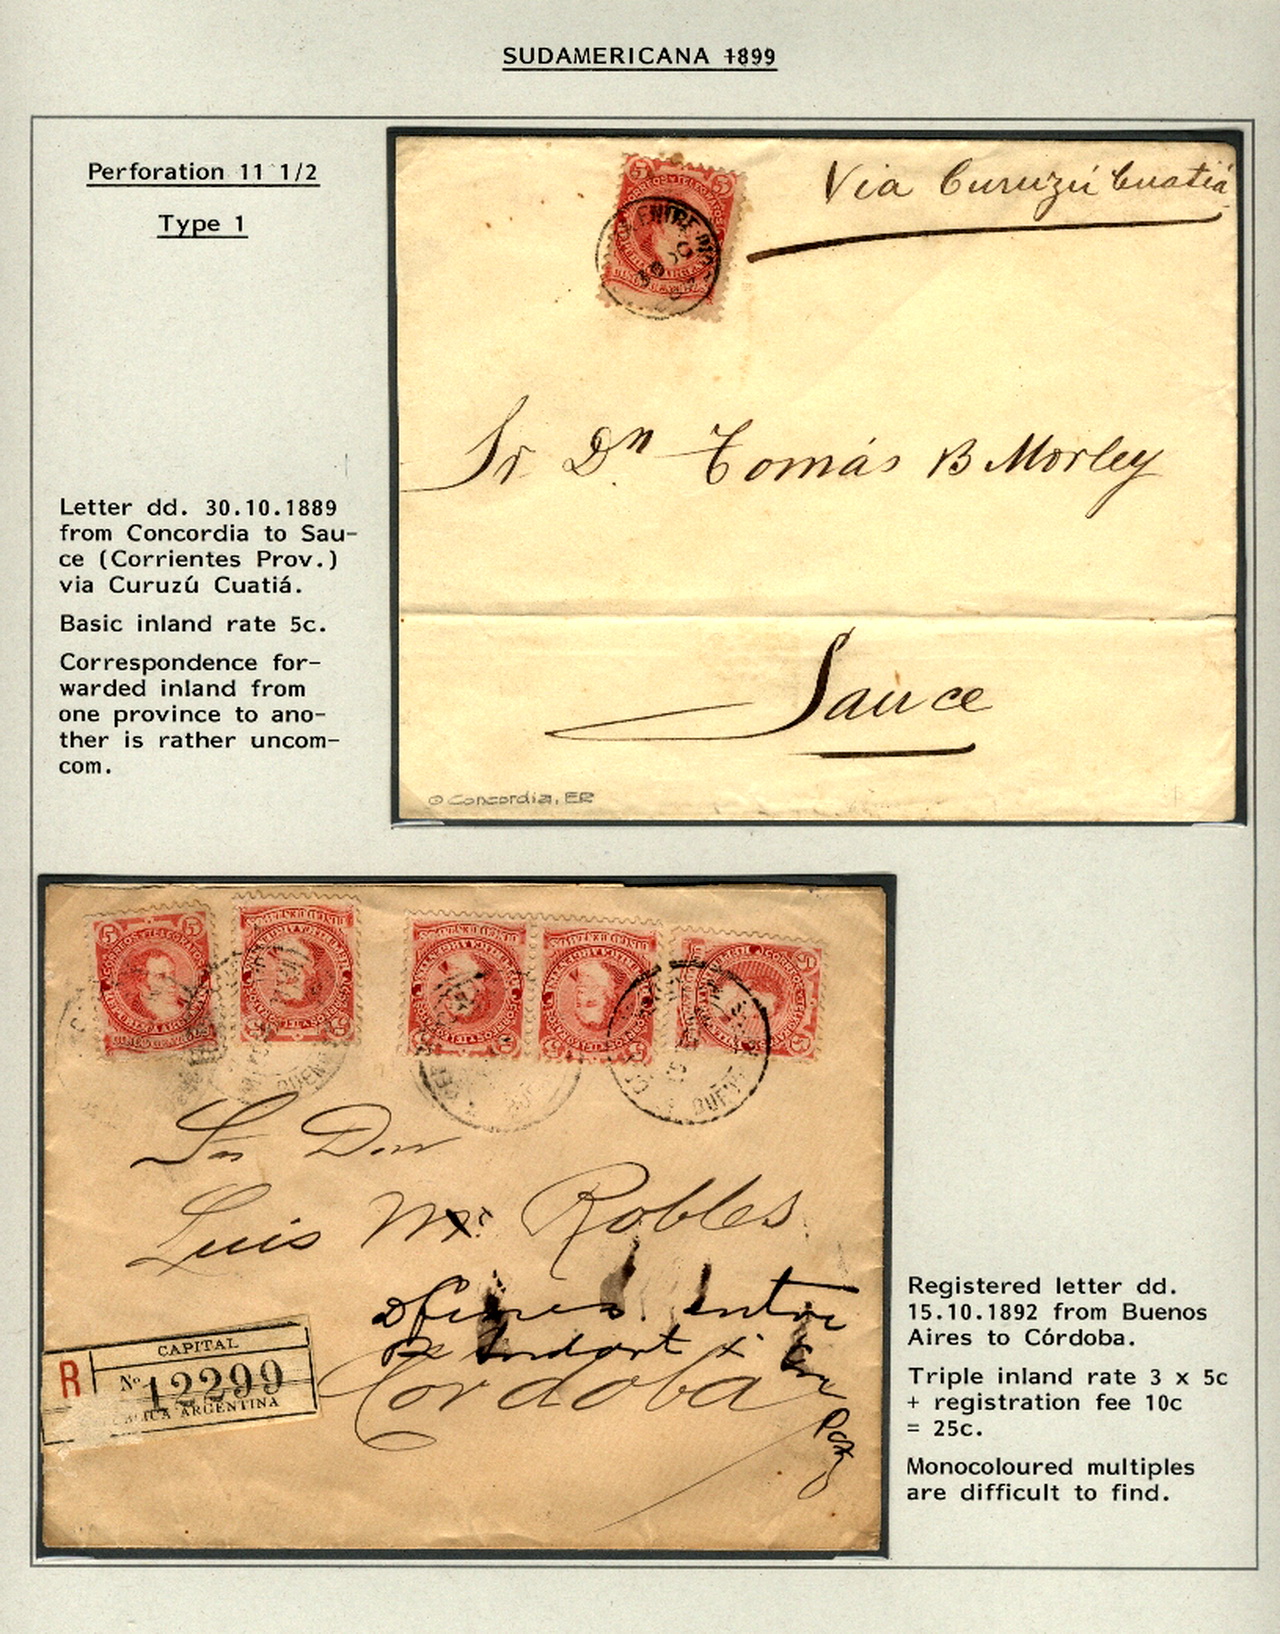 SUDAMERICANA 1899
Perforation 11 1/2
Type 1
Via Curuzú Cuatiá
Sr Dn Tomás B Morley
Sauce
Concordia, ER
Letter dd. 30.10.1889
from Concordia to Sau-
ce (Corrientes Prov.)
via Curuzú Cuatiá.
Basic inland rate 5c.
Correspondence for-
warded inland from
one province to ano-
ther is rather uncom-
com.
5 5
CORREOS Y TELEGRAFOS
Sr Don
Luis Robles
entre
Cordoba
Paz
CAPITAL
R No. 12299
ARGENTINA
Registered letter dd.
15.10.1892 from Buenos
Aires to Córdoba.
Triple inland rate 3 x 5c
+ registration fee 10c
= 25c.
Monocoloured multiples
are difficult to find.